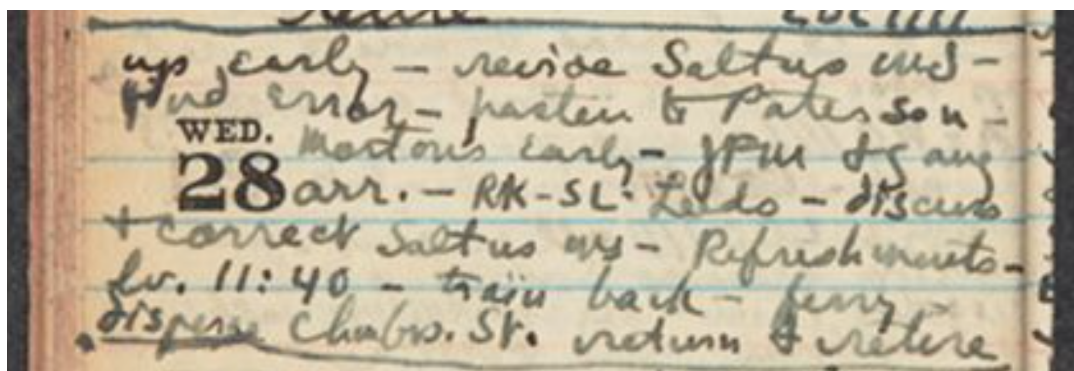 up early – revise Saltus MS –
find error – hasten to Paterson –
WED. Mortons early – JFM & gang
28 arr. – RK – SL – Leeds – discuss
+ correct Saltus MS – Refreshments –
lv. 11:40 – train back – ferry –
disperse Chmbs. St. return & retire